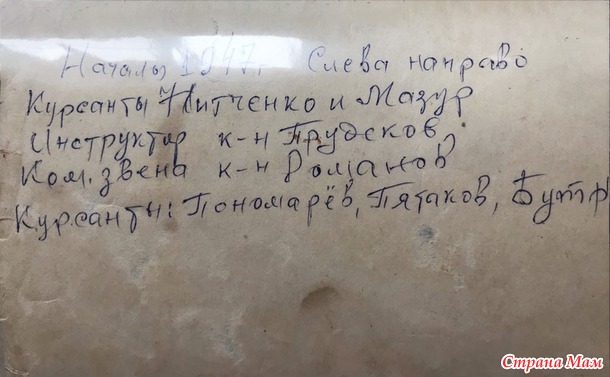 Начало 1947г. Слева направо
Курсанты Нитченко и Мазур
Инструктор к-н Прудсков,
Ком. звена к-н Романов
Курсанты: Пономарёв, Пятаков, Бутр
Страна Мам